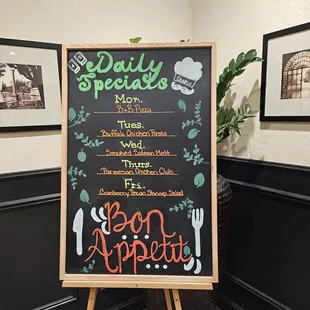 Daily
Specials
Mon.
B+B Pizza
Tues.
Buffalo Chicken Pasta
Wed.
Smoked Salmon Melt
Thurs.
Parmesan Chicken Club
Fri.
Cranberry Pecan Shrimp Salad
Bon
Appetit